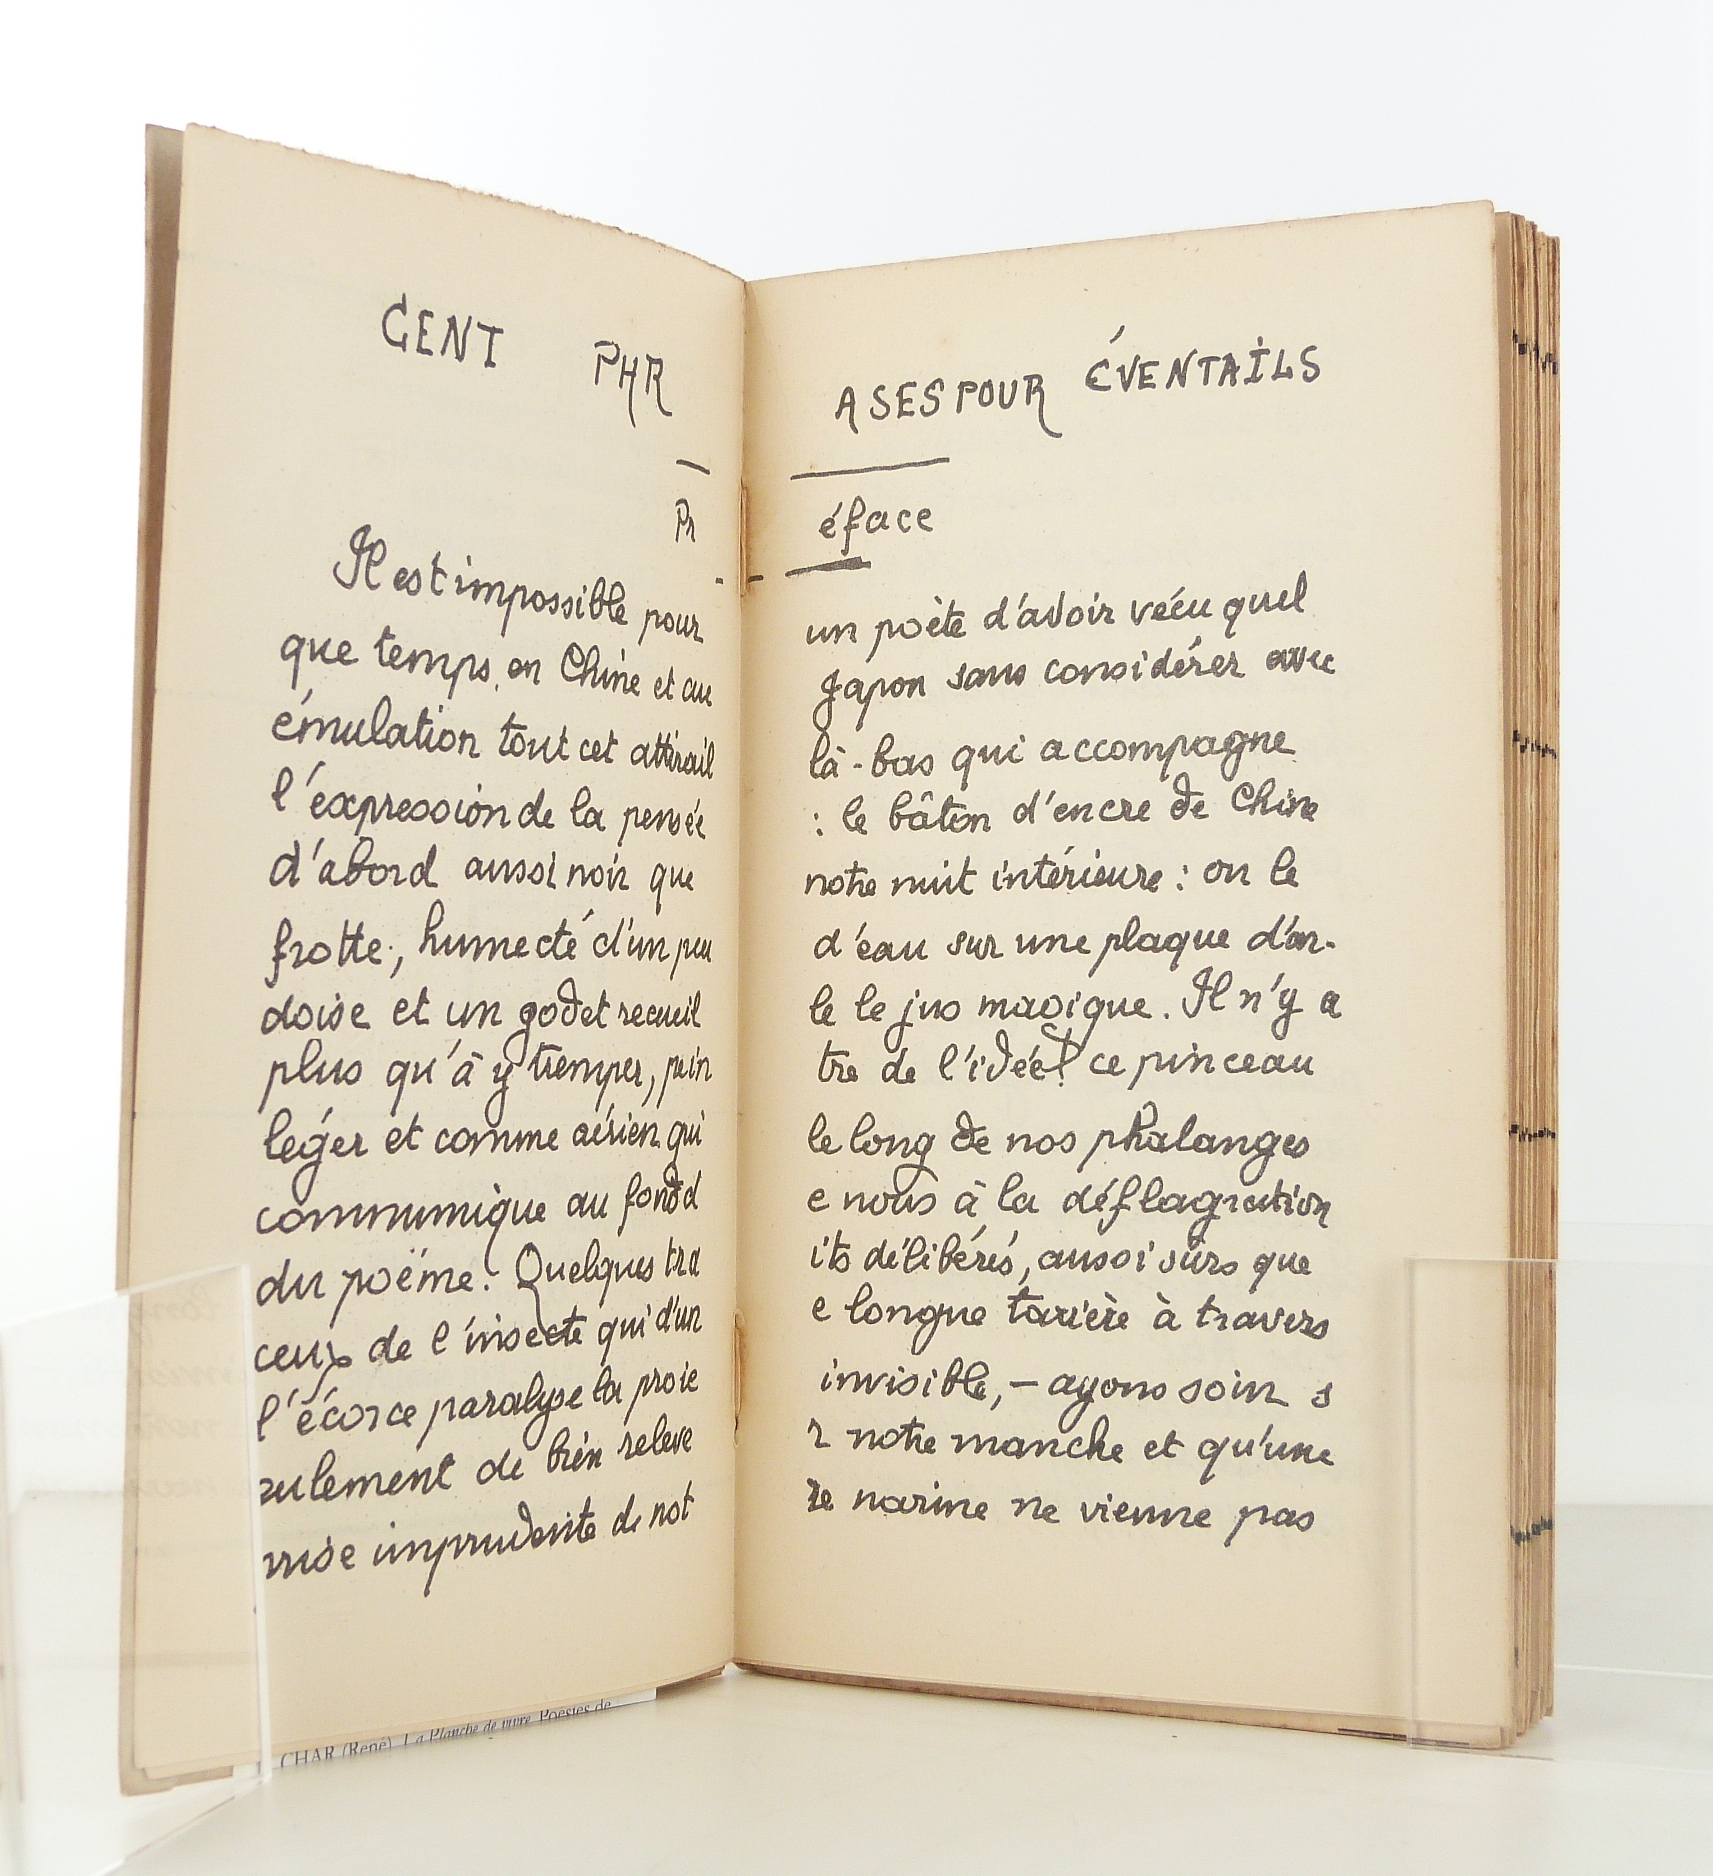 CENT PHR ASES POUR ÉVENTAILS
Pr éface
Il est impossible pour un poète d'avoir vécu quel
que temps en Chine et au Japon sans considérer avec
émulation tout cet attirail là-bas qui accompagne
l'expression de la pensée : le bâton d'encre de Chine
d'abord aussi noir que notre nuit intérieure : on le
frotte, humecté d'un peu d'eau sur une plaque d'ar-
doise et un godet recueil le le jus magique. Il n'y a
plus qu'à y tremper, pein tre de l'idée! ce pinceau
léger et comme aérien qui le long de nos phalanges
communique au fond d e nous à la déflagration
du poëme. Quelques tra its délibérés, aussi sûrs que
ceux de l'insecte qui d'un e longue tarière à travers
l'écorce paralyse la proie invisible, — ayons soin s
eulement de bien releve r notre manche et qu'une
prise imprudente de not re narine ne vienne pas
CHAR (René). La Planche de vivre. Poésies de